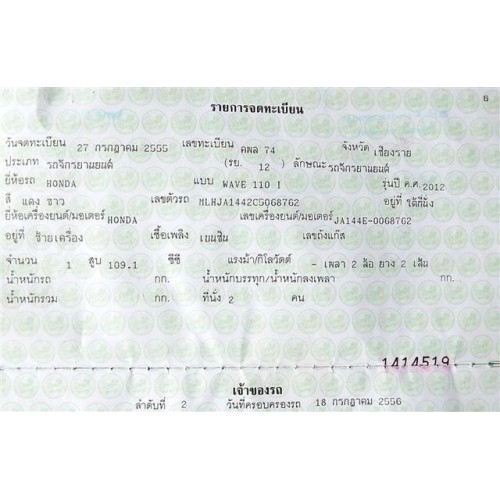 6
รายการจดทะเบียน
วันจดทะเบียน 27 กรกฎาคม 2555 เลขทะเบียน คพล 74 จังหวัด เชียงราย
ประเภท รถจักรยานยนต์ (รย. 12 ) ลักษณะ รถจักรยานยนต์
ยี่ห้อรถ HONDA แบบ WAVE 110 I รุ่นปี ค.ศ. 2012
สี แดง ขาว เลขตัวรถ MLHJA1442C5068762 อยู่ที่ ใต้ที่นั่ง
ยี่ห้อเครื่องยนต์/มอเตอร์ HONDA เลขเครื่องยนต์/มอเตอร์ JA144E-0068762
อยู่ที่ ซ้ายเครื่อง เชื้อเพลิง เบนซิน เลขถังแก๊ส
จำนวน 1 สูบ 109.1 ซีซี แรงม้า/กิโลวัตต์ - เพลา 2 ล้อ ยาง 2 เส้น
น้ำหนักรถ กก. น้ำหนักบรรทุก/น้ำหนักลงเพลา กก.
น้ำหนักรวม กก. ที่นั่ง 2 คน
1414519
เจ้าของรถ
ลำดับที่ 2 วันที่ครอบครองรถ 18 กรกฎาคม 2556